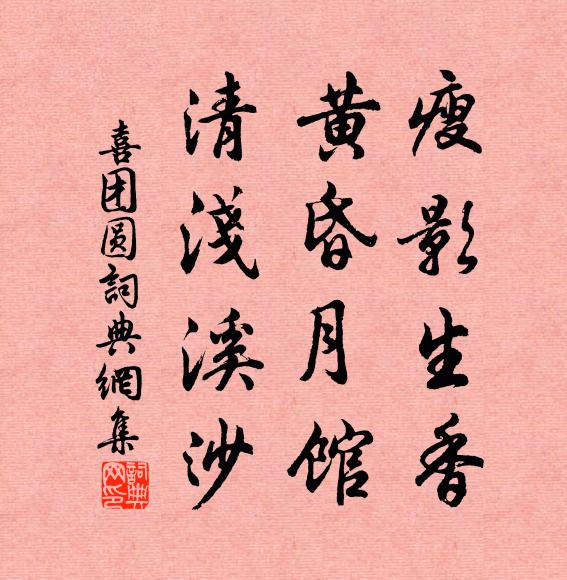 瘦影生香
黄昏月馆
清淺溪沙
喜团圆詞典網集
詞典
网印